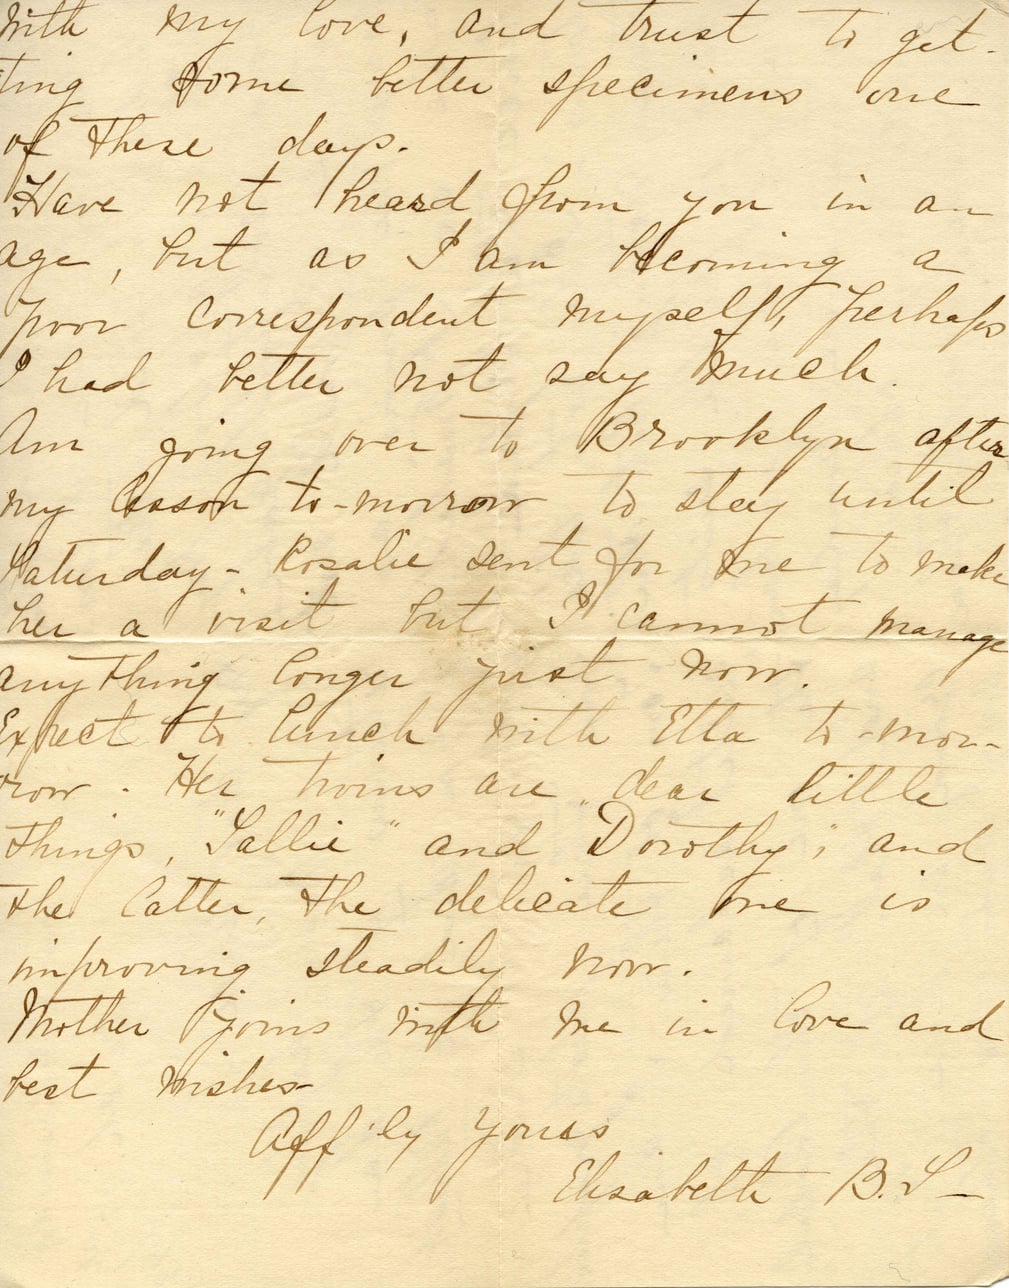 with my love, and trust to get-
ting some better specimens one
of these days.
Have not heard from you in an
age, but as I am becoming a
poor correspondent myself, perhaps
I had better not say much.
Am going over to Brooklyn after
my lesson to-morrow to stay until
Saturday - Rosalie sent for me to make
her a visit but I cannot manage
anything longer just now.
Expect to lunch with Etta to-mor-
row. Her twins are dear little
things, "Sallie" and "Dorothy", and
the latter, the delicate one is
improving steadily now.
Mother joins with me in love and
best wishes
Aff'ly Yours
Elisabeth B. S—